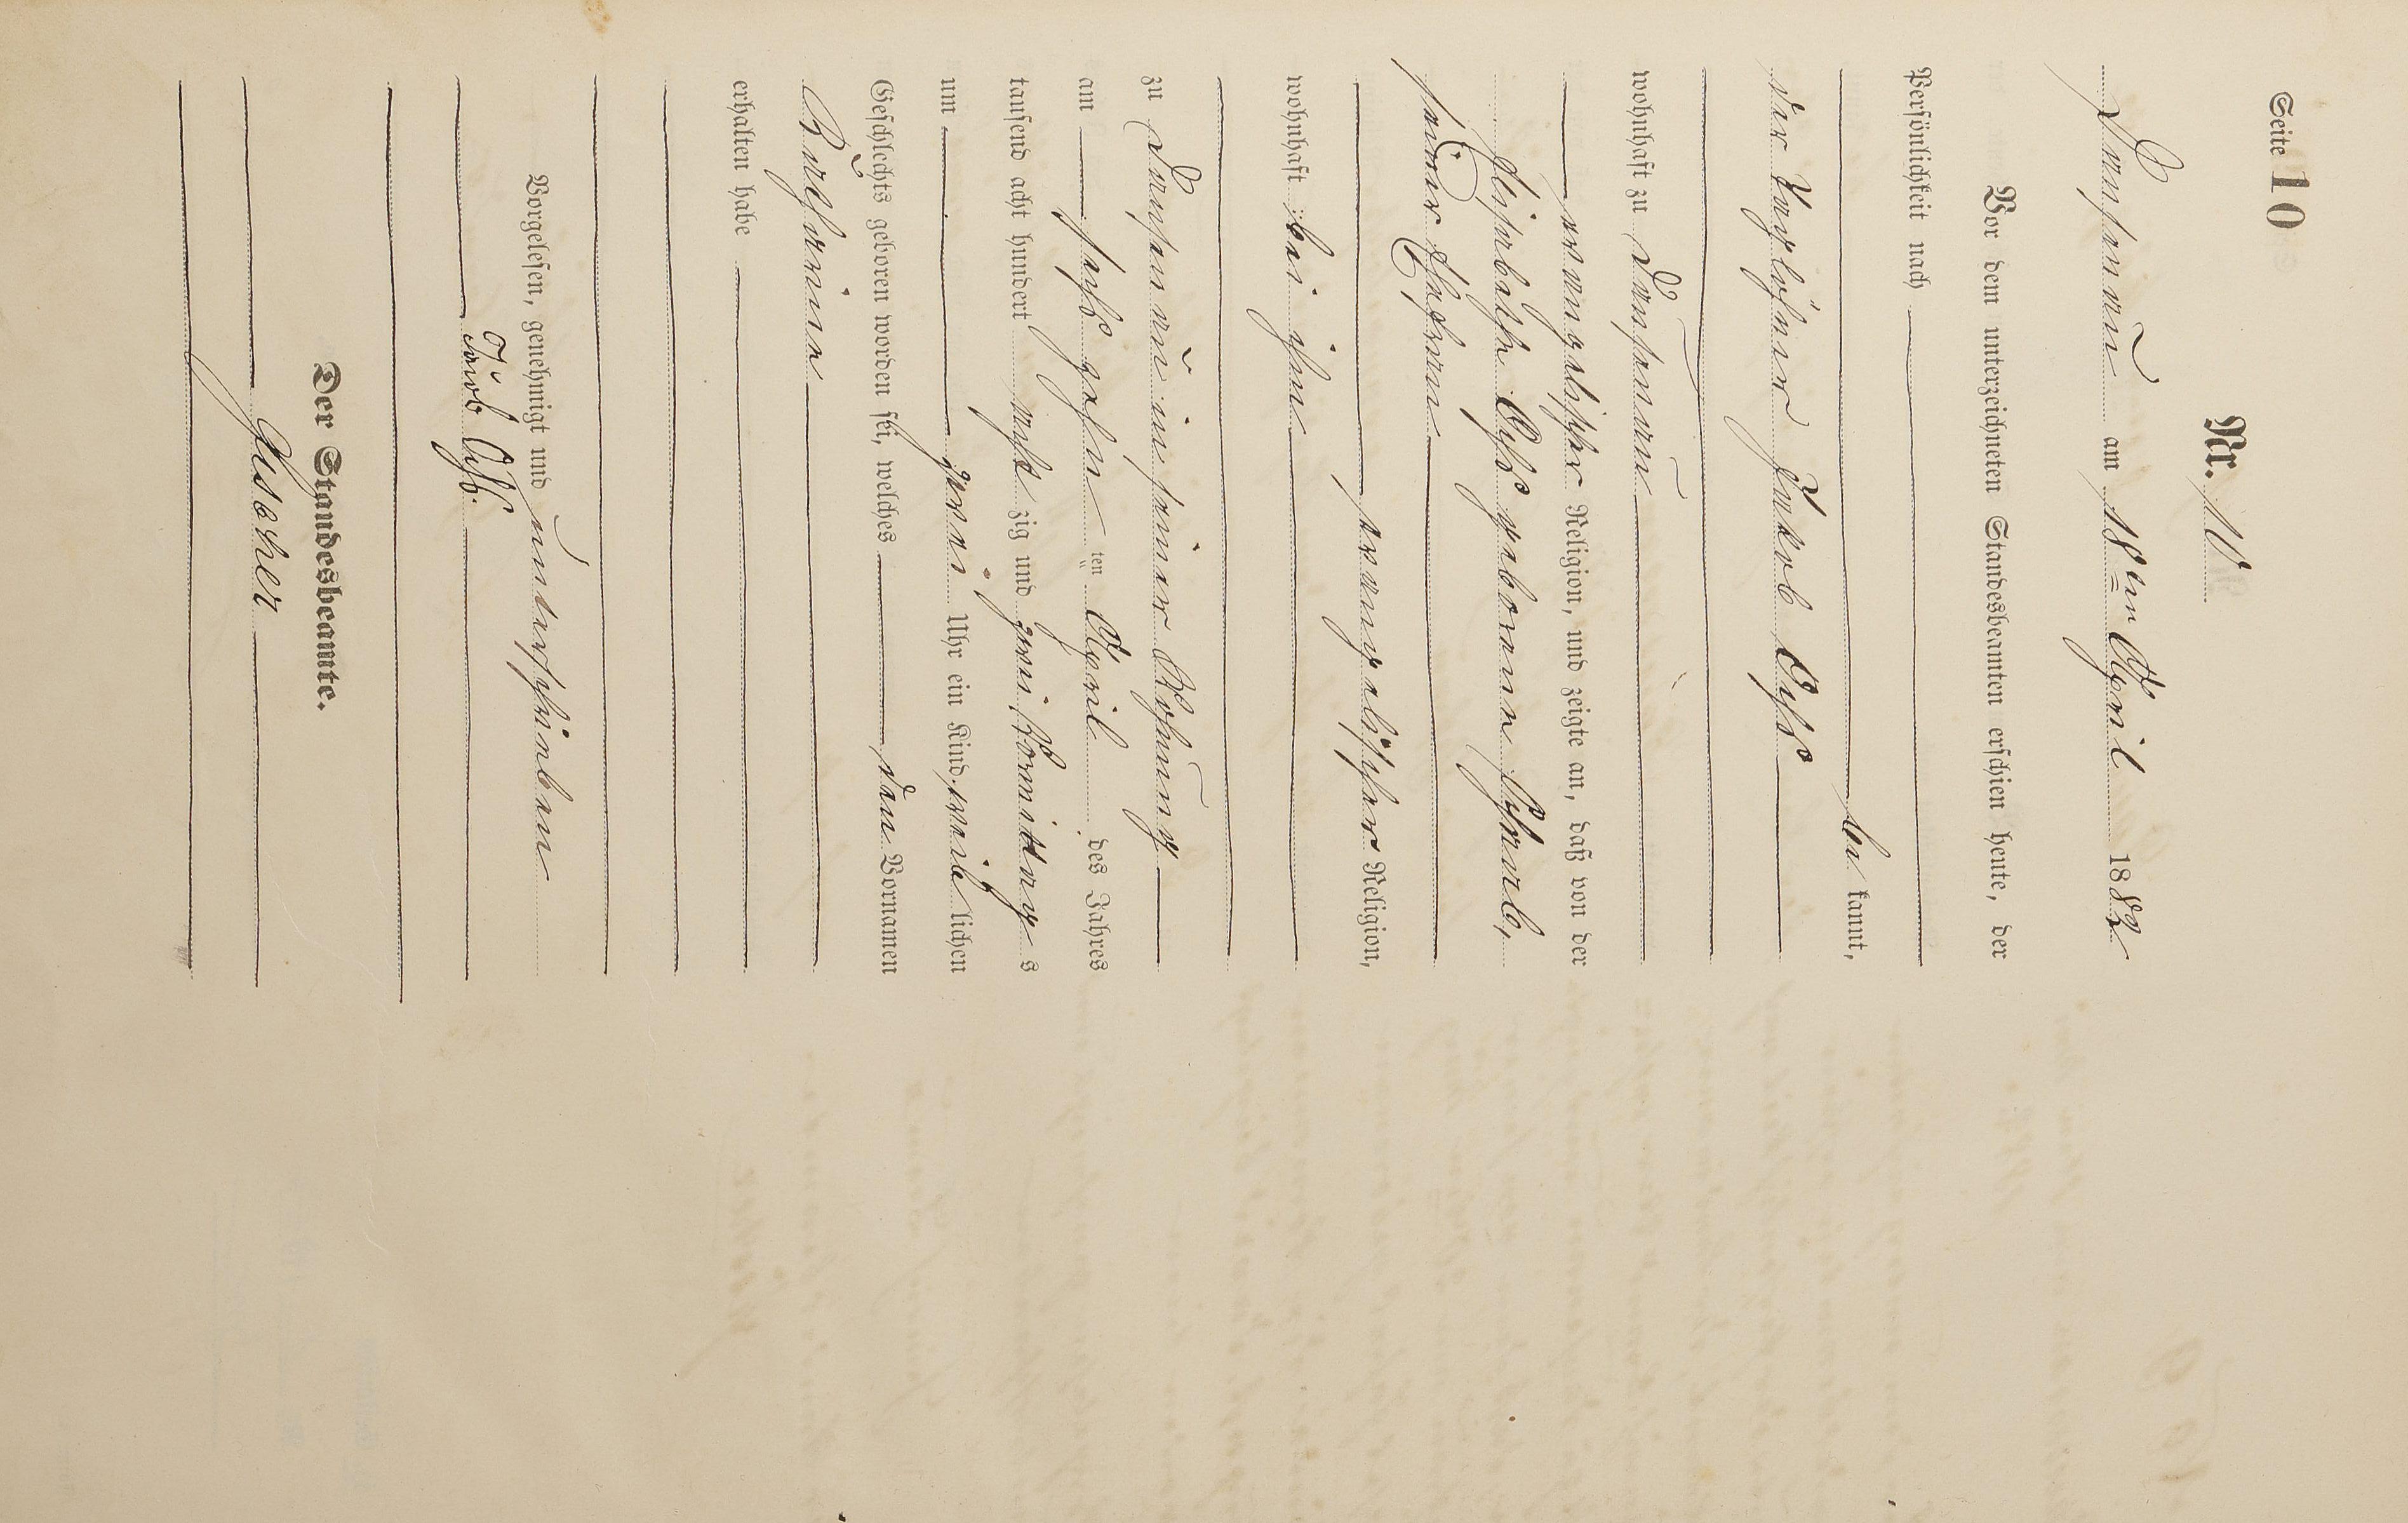 Seite 10
Nr. 10
Dausenau am 18ten April 1882
Vor dem unterzeichneten Standesbeamten erschien heute, der
Persönlichkeit nach
be kannt,
der Taglöhner Jakob Opp
wohnhaft zu Dausenau
evangelischer Religion, und zeigte an, daß von der
Elisabethe Opp geborene
seiner Ehefrau
evangelischer Religion,
wohnhaft bei ihm
zu Dausenau in seiner Wohnung
am sechszehnten April des Jahres
tausend acht hundert acht zig und zwei Vormittag s
um zwei Uhr ein Kind weib lichen
Geschlechts geboren worden sei, welches den Vornamen
Katharine
erhalten habe
Vorgelesen, genehmigt und unterschrieben
Jacob Opp.
Der Standesbeamte.